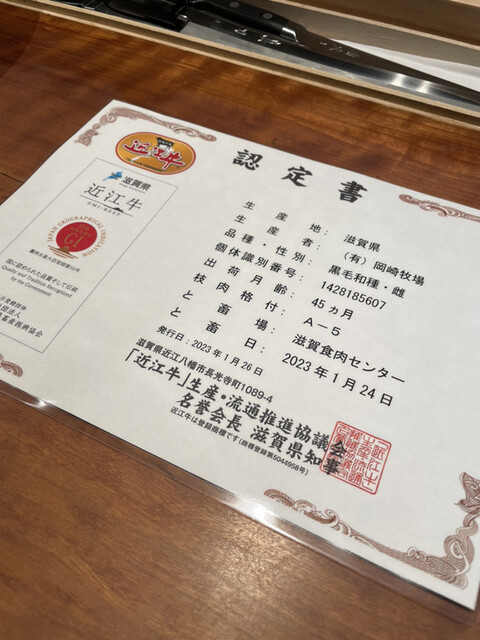 近江牛
認定書
滋賀県
近江牛
OMI-BEEF
JAPAN GEOGRAPHICAL INDICATION
GI
農林水産大臣登録第56号
国に認められた品質そして伝統
Quality and Tradition Recognized
by the Government
生産地: 滋賀県
生産者: (有)岡崎牧場
品種・性別: 黒毛和種・雌
個体識別番号: 1428185607
出荷月齢: 45ヵ月
枝肉格付: A-5
と畜場: 滋賀食肉センター
と畜日: 2023年1月24日
発行日:2023年1月26日
滋賀県近江八幡市長光寺町1089-4
「近江牛」生産・流通推進協議会
名誉会長 滋賀県知事
近江牛は登録商標です(商標登録第5044958号)